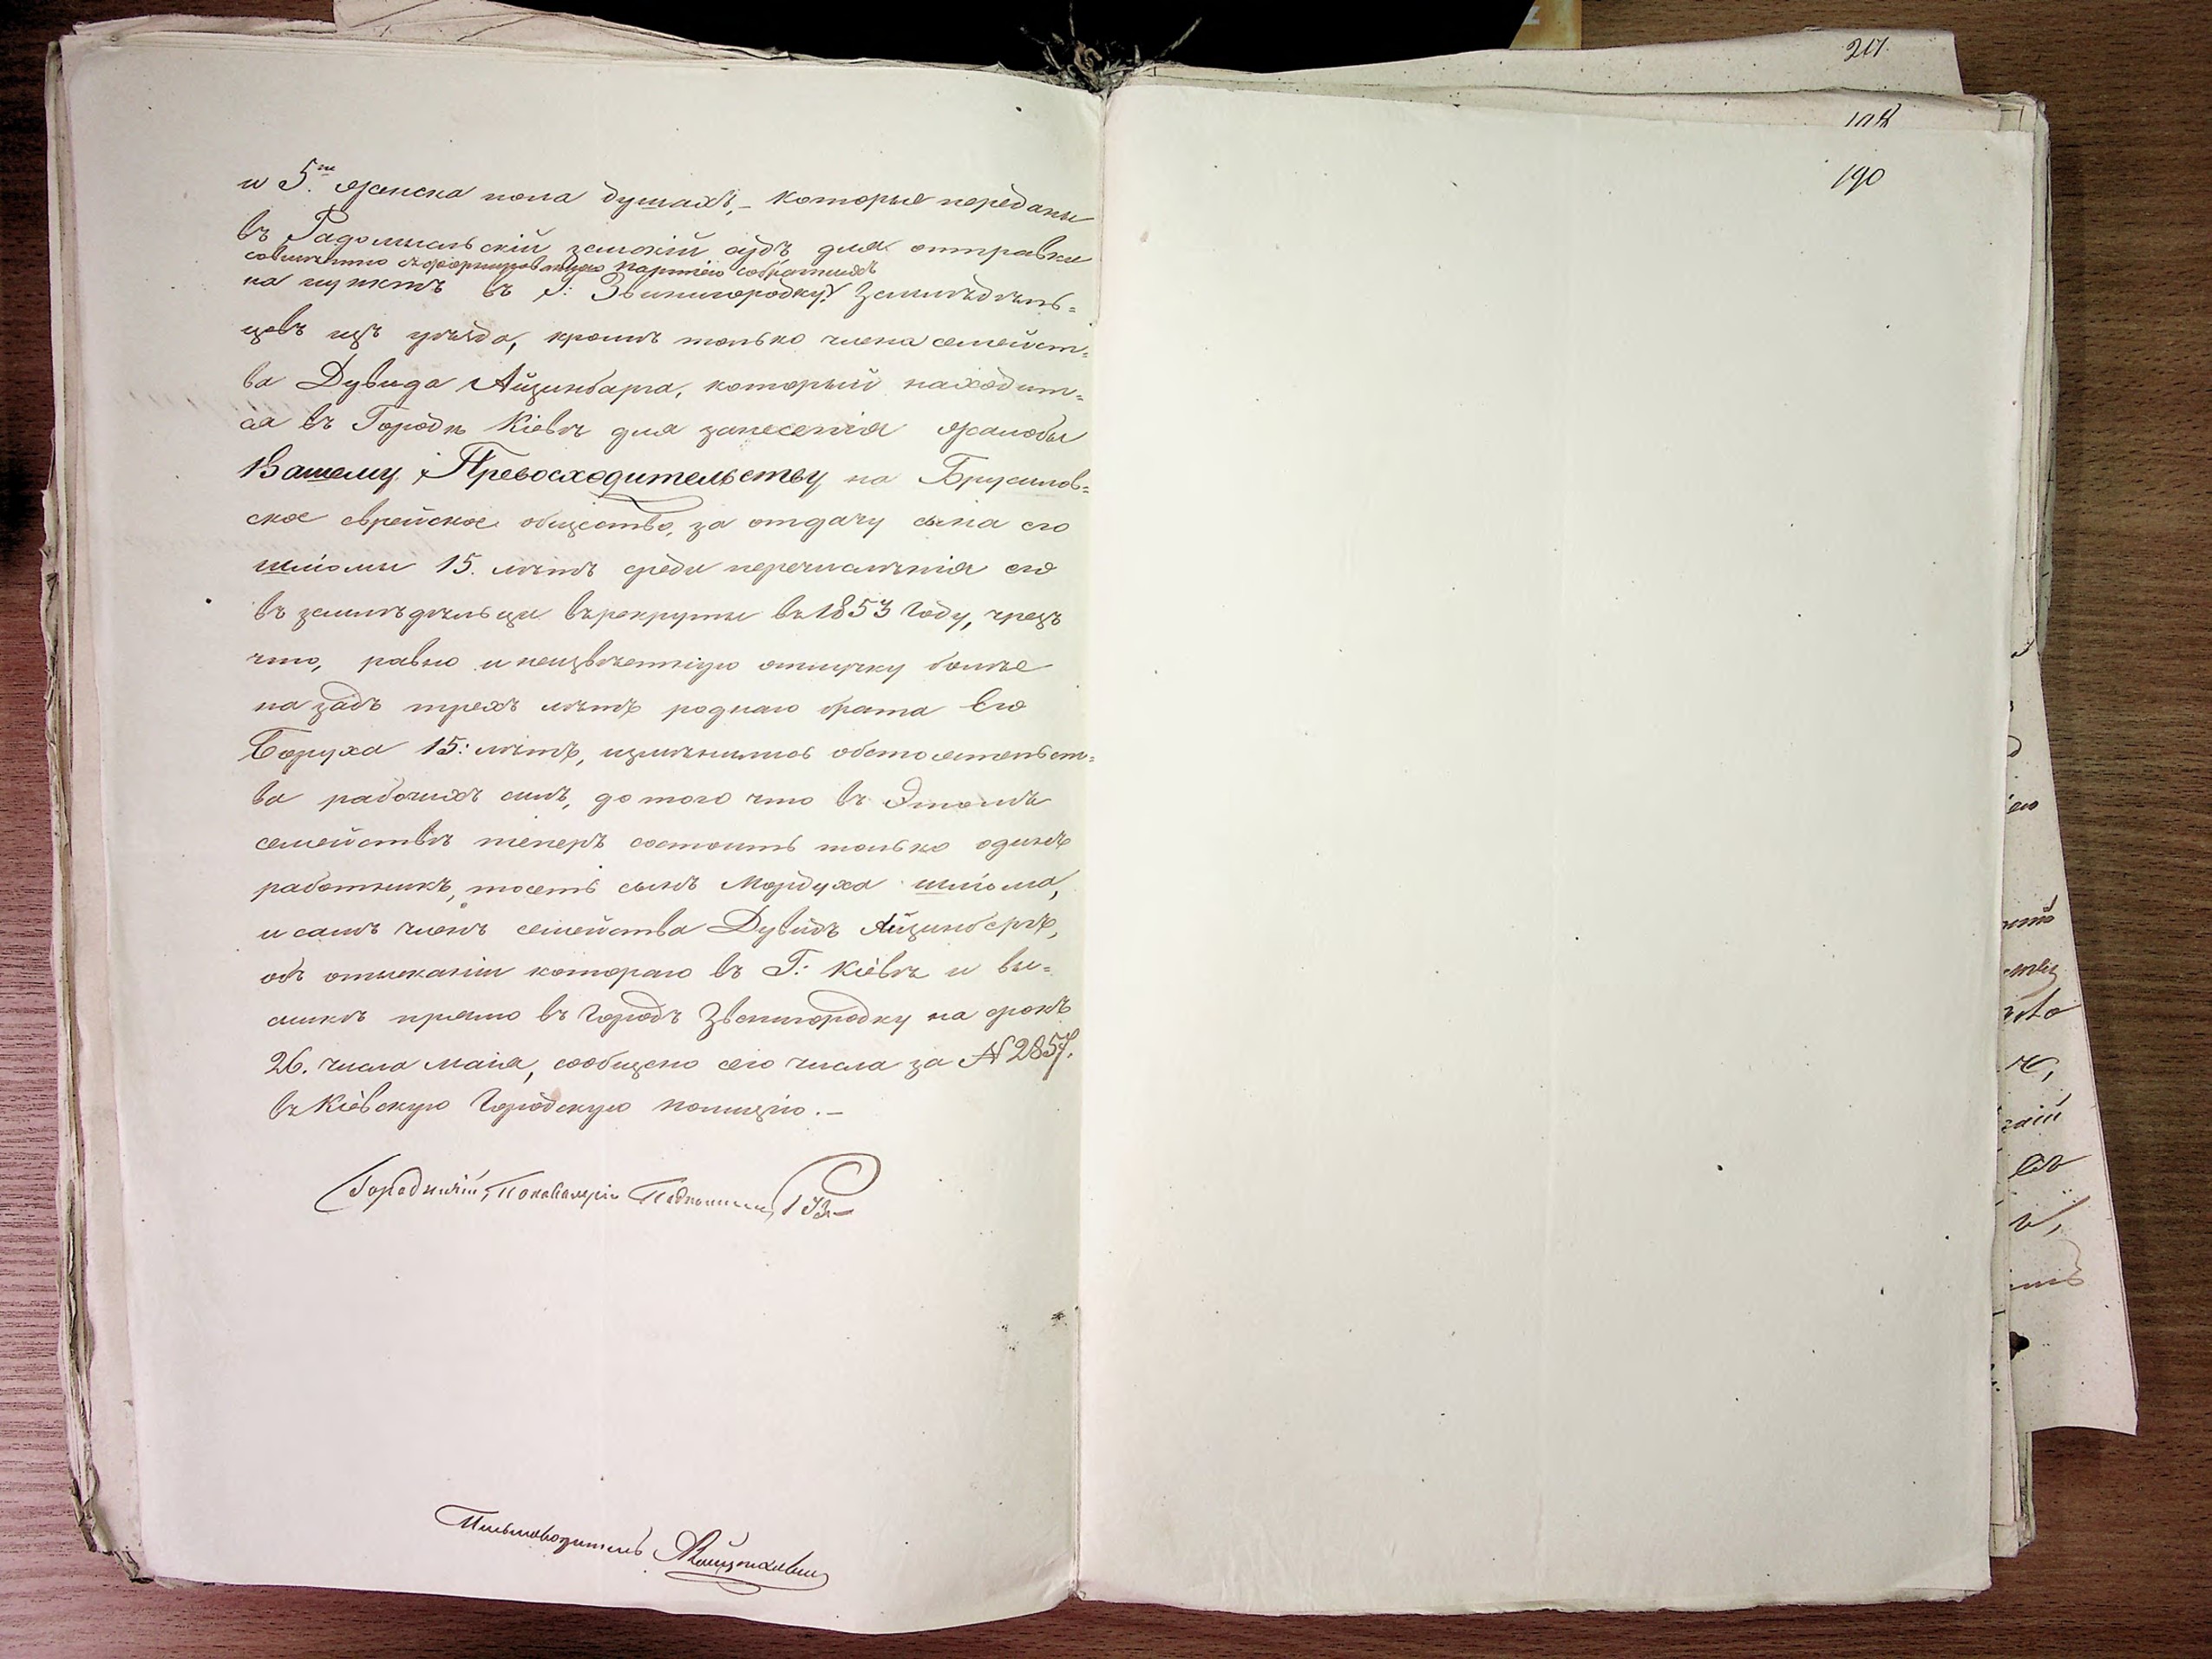 217
198
190
и 5.ти женска пола душахъ, – которые переданы
въ Радомысльскій земскій судъ для отправки
совмѣстно съ формированною партіею собратихъ
на пунктъ въ Г: Звенигородку. Земледѣль=
цовъ изъ уѣзда, кромѣ только члена семейст=
ва Дувида Айзинбарга, который находит=
ся въ Городѣ Кіевѣ для занесенія жалобы
Вашему Превосходительству на Брусилов=
ское еврейское общество, за отдачу сына его
Шліомы 15. лѣтъ среди перечисленія его
въ земледѣльцы въ рекруты въ 1853 Году, чрезъ
что, равно и неизвѣстную отлучку болѣе
на задъ трехъ лѣтъ роднаго брата Его
Боруха 15: лѣтъ, измѣнились обстоятельст=
ва рабочихъ силъ, до того что въ Этомъ
семействѣ теперъ состоитъ только одинъ
работникъ, тоесть сынъ Мордуха Шліома,
и самъ членъ семейства Дувидъ Айзинбергъ,
объ отысканіи котораго въ Г: Кіевѣ и вы=
сылкѣ прямо въ Городъ Звенигородку на срокъ
26. числа Маія, сообщено сего числа за № 2857.
въ Кіевскую Городскую полицію. –
Городничій,
Письмоводитель